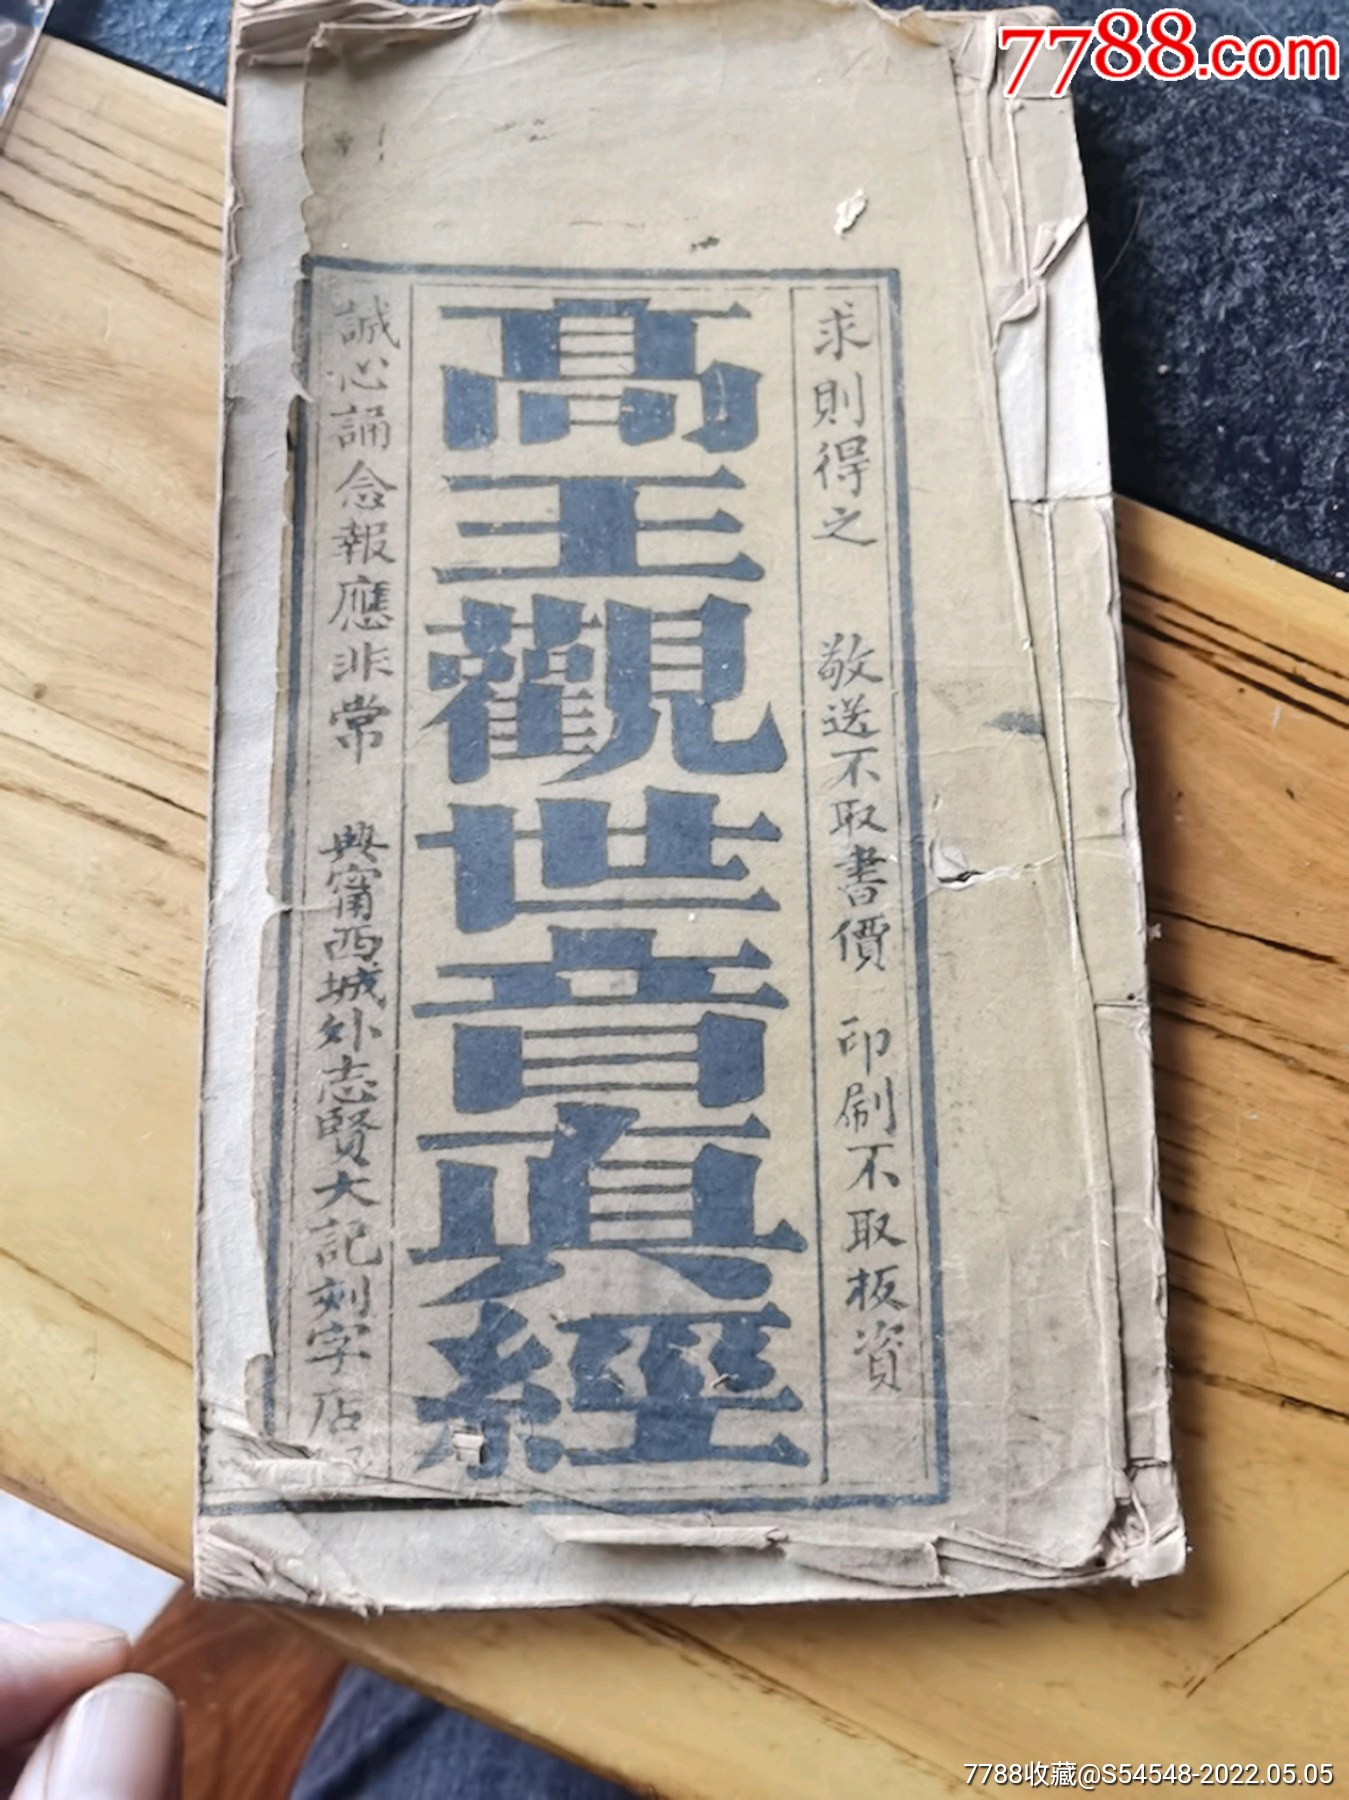 7788.com
求則得之 敬送不取書價 印刷不取板資
高王觀世音真經
誠心誦念報應非常 興甯西城外志賢大記刻字店
7788收藏@S54548-2022.05.05